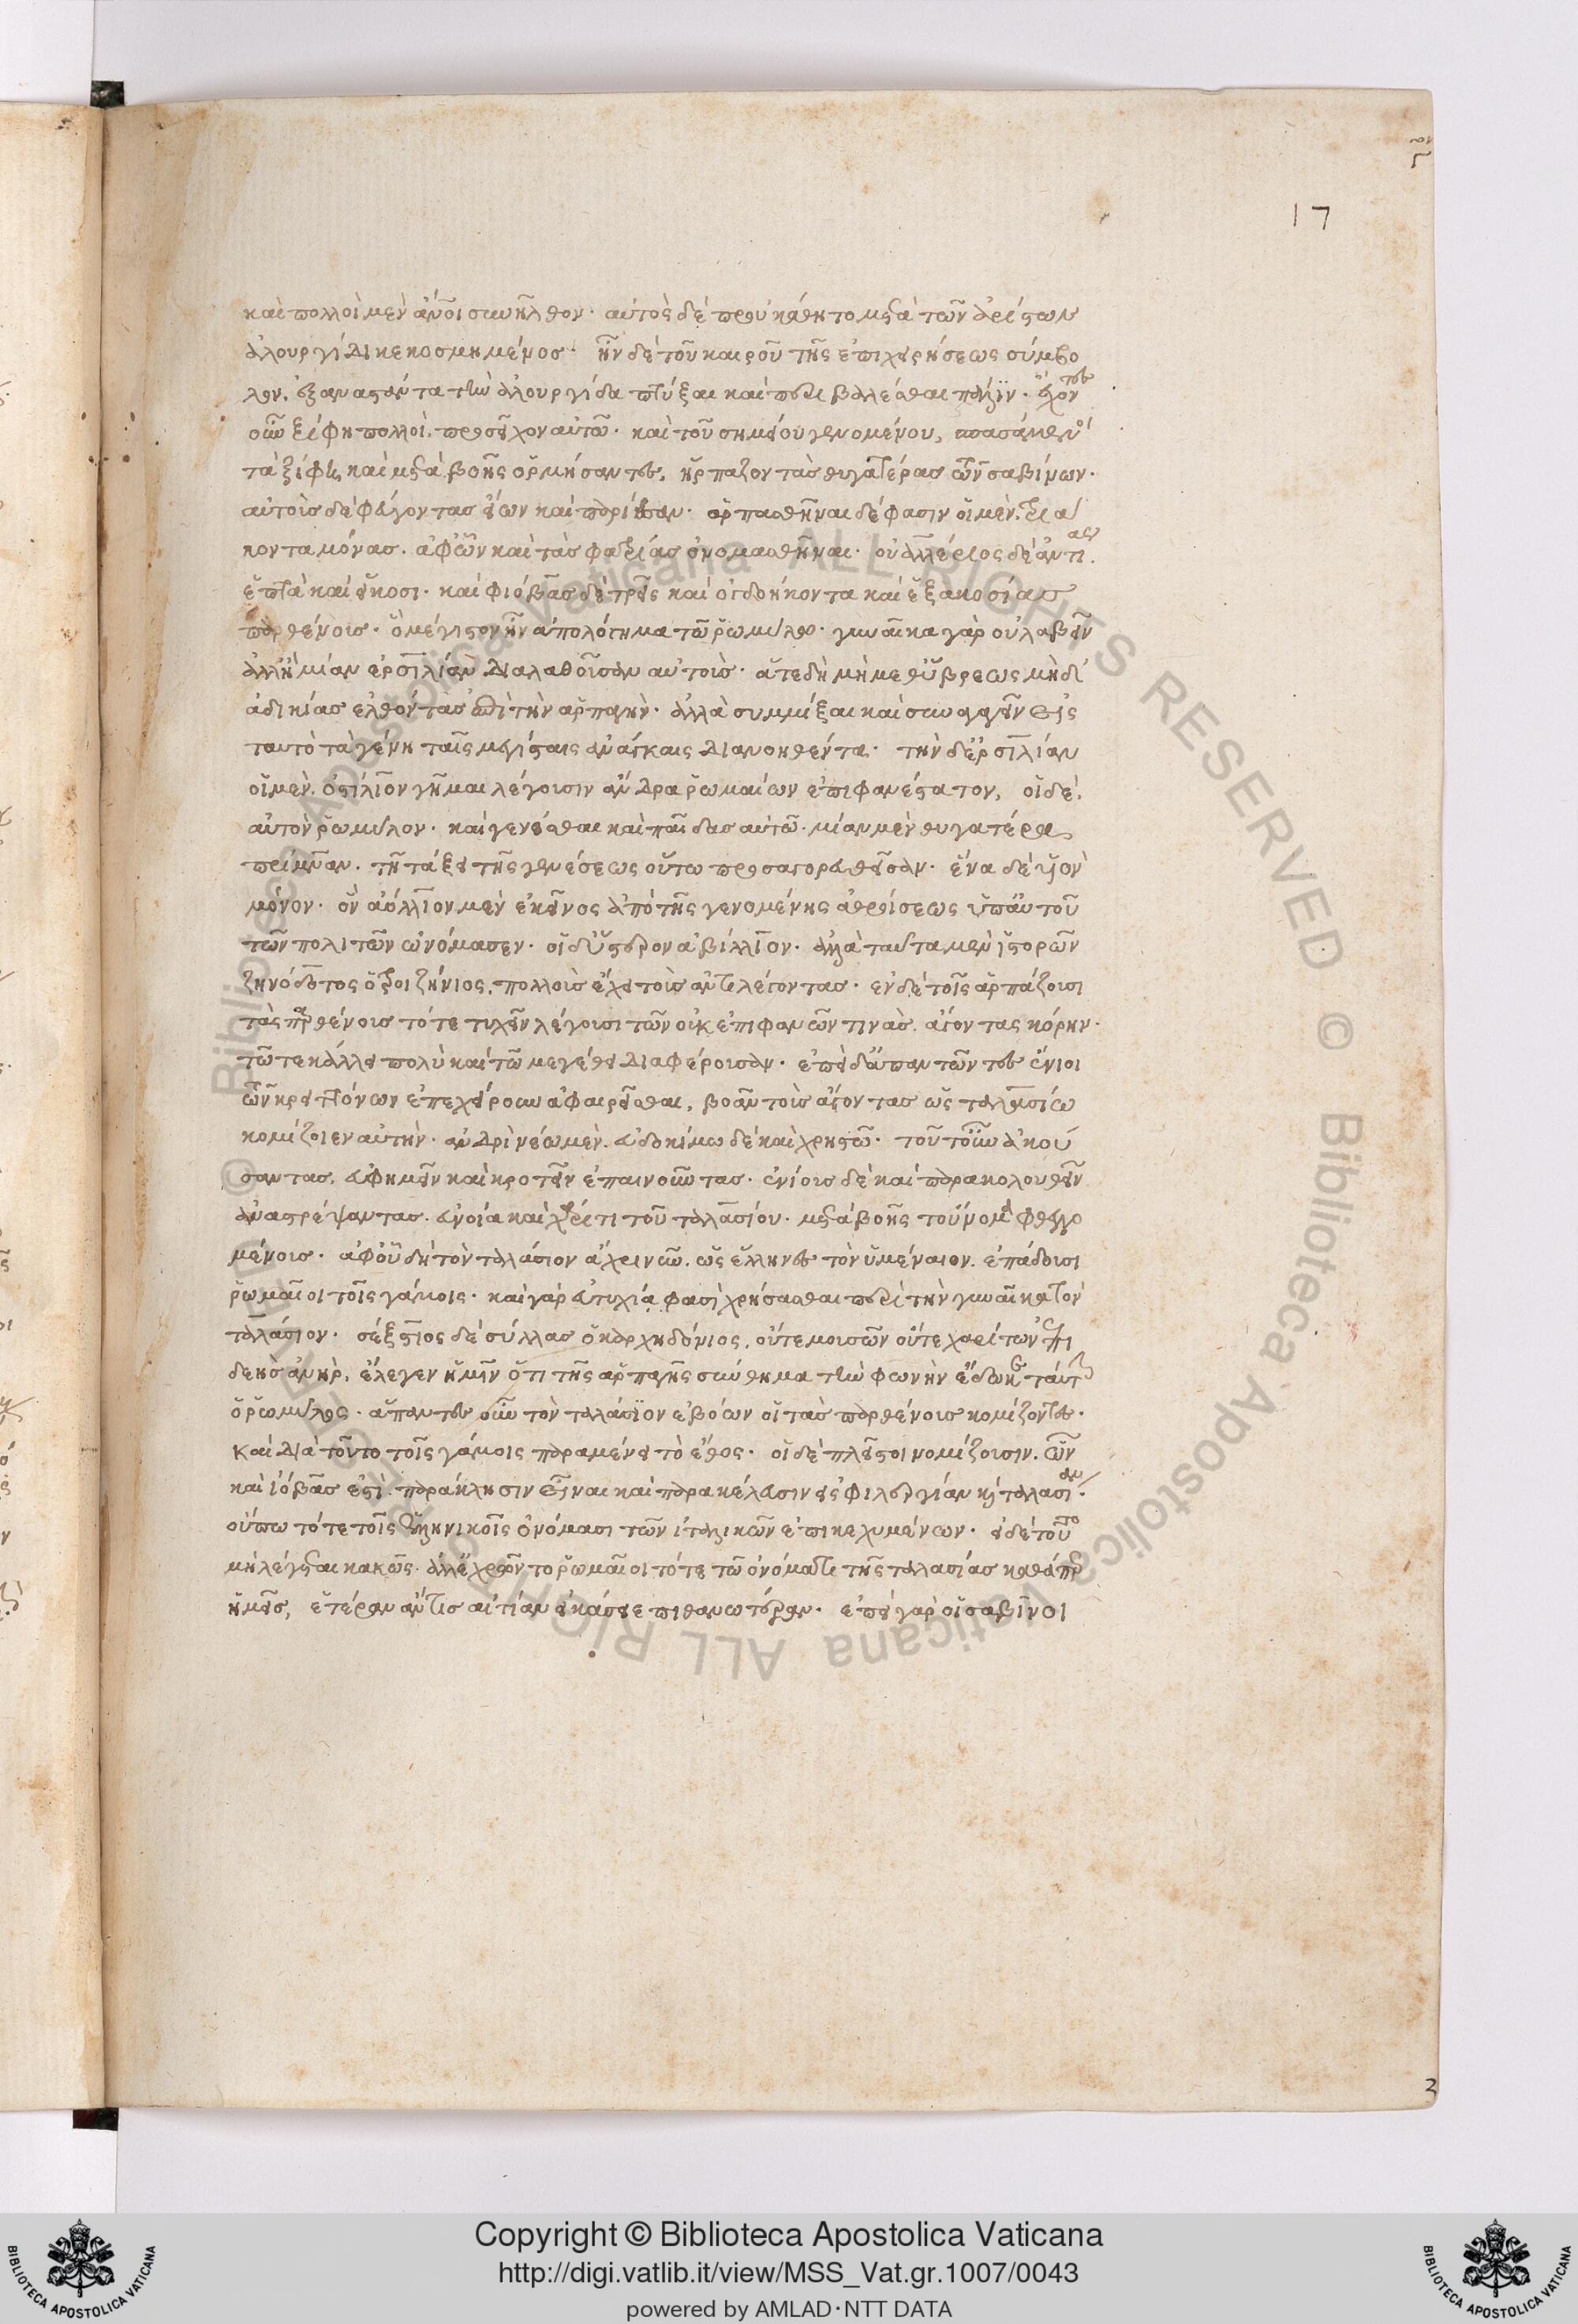 17
καὶ πολλοὶ μὲν ἄνοι συνῆλθον· αὐτὸς δὲ προὐκάθητο μετὰ τῶν ἀρίστων
ἁλουργίδι κεκοσμημένος· ἦν δὲ τοῦ καιροῦ τῆς ἐπιχειρήσεως σύμβο
λον, ἐξαναστάντα τὴν ἁλουργίδα πτύξαι καὶ περιβαλέσθαι πάλιν· ἔχοντες
οὖν ξίφη πολλοὶ, προσεῖχον αὐτῷ· καὶ τοῦ σημείου γενομένου, σπασάμενοι
τὰ ξίφη, καὶ μετὰ βοῆς ὁρμήσαντες, ἥρπαζον τὰς θυγατέρας τῶν σαβίνων·
αὐτοὺς δὲ φεύγοντας εἴων καὶ παρίεσαν· ἁρπασθῆναι δέ φασιν οἱ μὲν, τριά
κοντα μόνας. ἀφ' ὧν καὶ τὰς φατρίας ὀνομασθῆναι· οὐαλλέριος δὲ ἀντίας.
ἑπτὰ καὶ εἴκοσι· καὶ φιόβας δὲ τρεῖς καὶ ὀγδοήκοντα καὶ ἑξακοσίας
παρθένους· ὃ μέγιστον ἦν ἀπολόγημα τῷ ῥωμύλῳ· γυναῖκα γὰρ οὐ λαβεῖν
ἀλλ' ἢ μίαν ἐρσιλίαν διαλαθοῦσαν αὐτοὺς· ἅτε δὴ μὴ μεθ' ὕβρεως μηδ'
ἀδικίας ἐλθόντας ἐπὶ τὴν ἁρπαγὴν· ἀλλὰ συμμίξαι καὶ συναγαγεῖν εἰς
ταυτὸ τὰ γένη ταῖς μεγίσταις ἀνάγκαις διανοηθέντα· τὴν δ' ἐρσιλίαν
οἱ μὲν, ὁστίλιον γῆμαι λέγουσιν ἄνδρα ῥωμαίων ἐπιφανέστατον, οἱ δὲ,
αὐτὸν ῥωμύλον· καὶ γενέσθαι καὶ παῖδας αὐτῷ· μίαν μὲν θυγατέρα
πρίμαν. τῇ τάξει τῆς γενέσεως οὕτω προσαγορευθεῖσαν· ἕνα δὲ υἱὸν
μόνον· ὃν ἀόλλιον μὲν ἐκεῖνος ἀπὸ τῆς γενομένης ἀθροίσεως ὑπ' αὐτοῦ
τῶν πολιτῶν ὠνόμασεν· οἱ δ' ὕστερον ἀβίλλιον· ἀλλὰ ταῦτα μὲν ἱστορῶν
ζηνόδοτος ὁ τροιζήνιος, πολλοὺς ἔχει τοὺς ἀντιλέγοντας· ἐν δὲ τοῖς ἁρπάζουσι
τὰς παρθένους τότε τυχεῖν λέγουσι τῶν οὐκ ἐπιφανῶν τινὰς. ἄγοντας κόρην·
τῷ τε κάλλει πολὺ καὶ τῷ μεγέθει διαφέρουσαν· ἐπεὶ δ' ἀπαντῶντες ἔνιοι
τῶν κρειττόνων ἐπεχείρουν ἀφαιρεῖσθαι, βοᾶν τοὺς ἄγοντας ὡς ταλασίῳ
κομίζοιεν αὐτὴν· ἀνδρὶ νέῳ μὲν, εὐδοκίμῳ δὲ καὶ χρηστῷ· τοῦτο οὖν ἀκού
σαντας, εὐφημεῖν καὶ κροτεῖν ἐπαινοῦντας· ἐνίους δὲ καὶ παρακολουθεῖν
ἀναστρέψαντας. εὐνοίᾳ καὶ χάριτι τοῦ ταλασίου· μετὰ βοῆς τοὔνομα φθεγγο
μένους· ἀφ' οὗ δὴ τὸν ταλάσιον ἄχρι νῦν. ὡς ἕλληνες τὸν ὑμέναιον. ἐπᾴδουσι
ῥωμαῖοι τοῖς γάμοις· καὶ γὰρ εὐτυχίᾳ φασὶ χρήσασθαι περὶ τὴν γυναῖκα τὸν
ταλάσιον· σέξτιος δὲ σύλλας ὁ καρχηδόνιος, οὔτε μουσῶν οὔτε χαρίτων ἐπι
δεὴς ἀνὴρ, ἔλεγεν ἡμῖν ὅτι τῆς ἁρπαγῆς σύνθημα τὴν φωνὴν ἔδωκε ταύτην
ὁ ῥωμύλος· ἅπαντες οὖν τὸν ταλάσιον ἐβόων οἱ τὰς παρθένους κομίζοντες·
καὶ διὰ τοῦτο τοῖς γάμοις παραμένει τὸ ἔθος· οἱ δὲ πλεῖστοι νομίζουσιν. ὧν
καὶ ἰόβας ἐστὶ. παράκλησιν εἶναι καὶ παρακέλευσιν εἰς φιλεργίαν καὶ ταλασίαν·
οὔπω τότε τοῖς ἑλληνικοῖς ὀνόμασι τῶν ἰταλικῶν ἐπικεχυμένων· εἰ δὲ τοῦτο
μὴ λέγεται κακῶς. ἀλλ' ἐχρῶντο ῥωμαῖοι τότε τῷ ὀνόματι τῆς ταλασίας καθάπερ
ἡμεῖς, ἑτέραν ἄν τις αἰτίαν εἰκάσειε πιθανωτέραν· ἐπεὶ γὰρ οἱ σαβῖνοι
Copyright © Biblioteca Apostolica Vaticana
http://digi.vatlib.it/view/MSS_Vat.gr.1007/0043
powered by AMLAD·NTT DATA
BIBLIOTECA APOSTOLICA VATICANA
BIBLIOTECA APOSTOLICA VATICANA
© Biblioteca Apostolica Vaticana ALL RIGHTS RESERVED
© Biblioteca Apostolica Vaticana ALL RIGHTS RESERVED